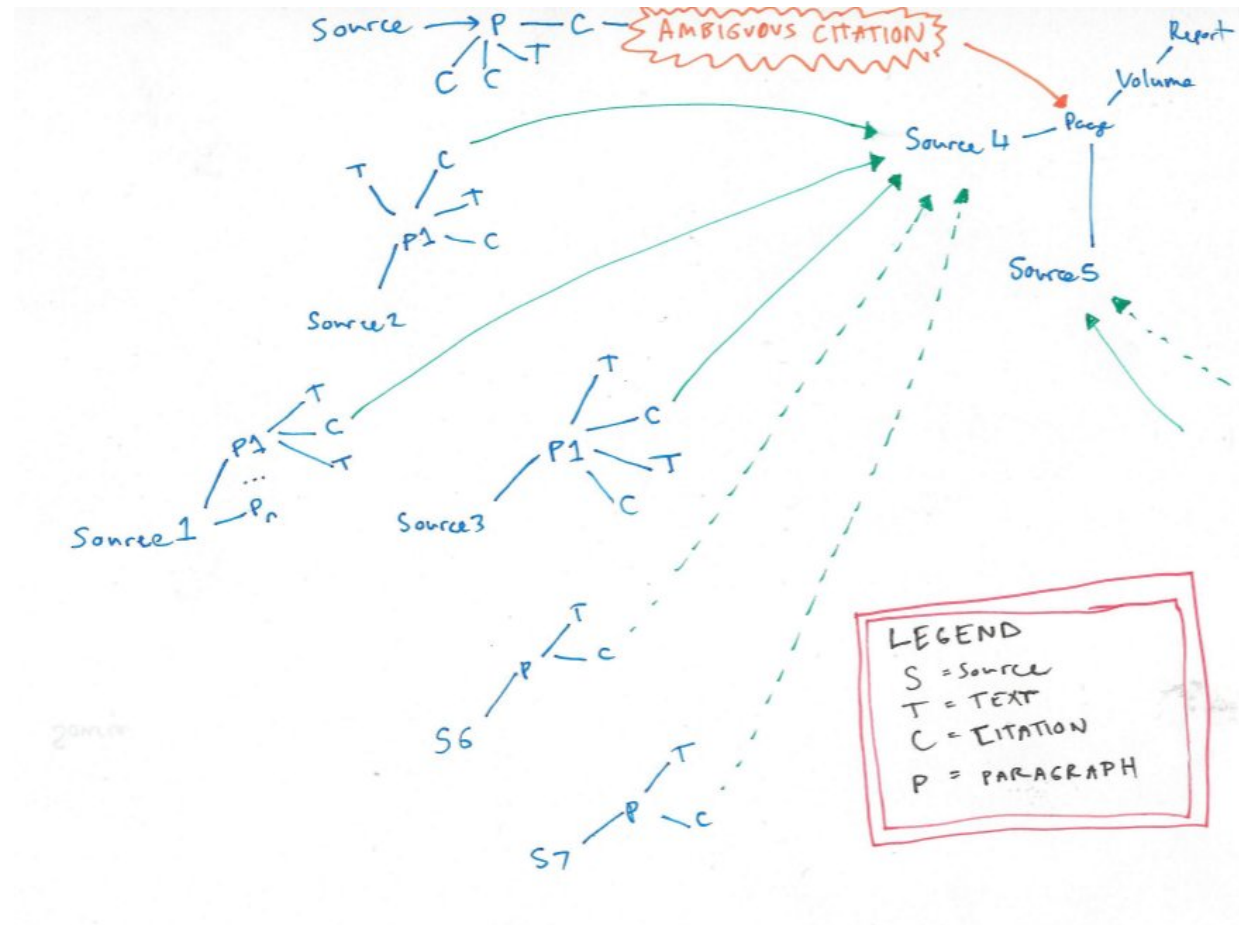 Source P C AMBIGUOUS CITATION Report
C C T Volume
Source 4 Page
T C
T
P1 C
Source 5
Source 2
T
P1 C
T
...
Pn
Source 1
T
C
P1 T
C
Source 3
T
P C
S6
T
P C
S7
LEGEND
S = Source
T = TEXT
C = CITATION
P = PARAGRAPH